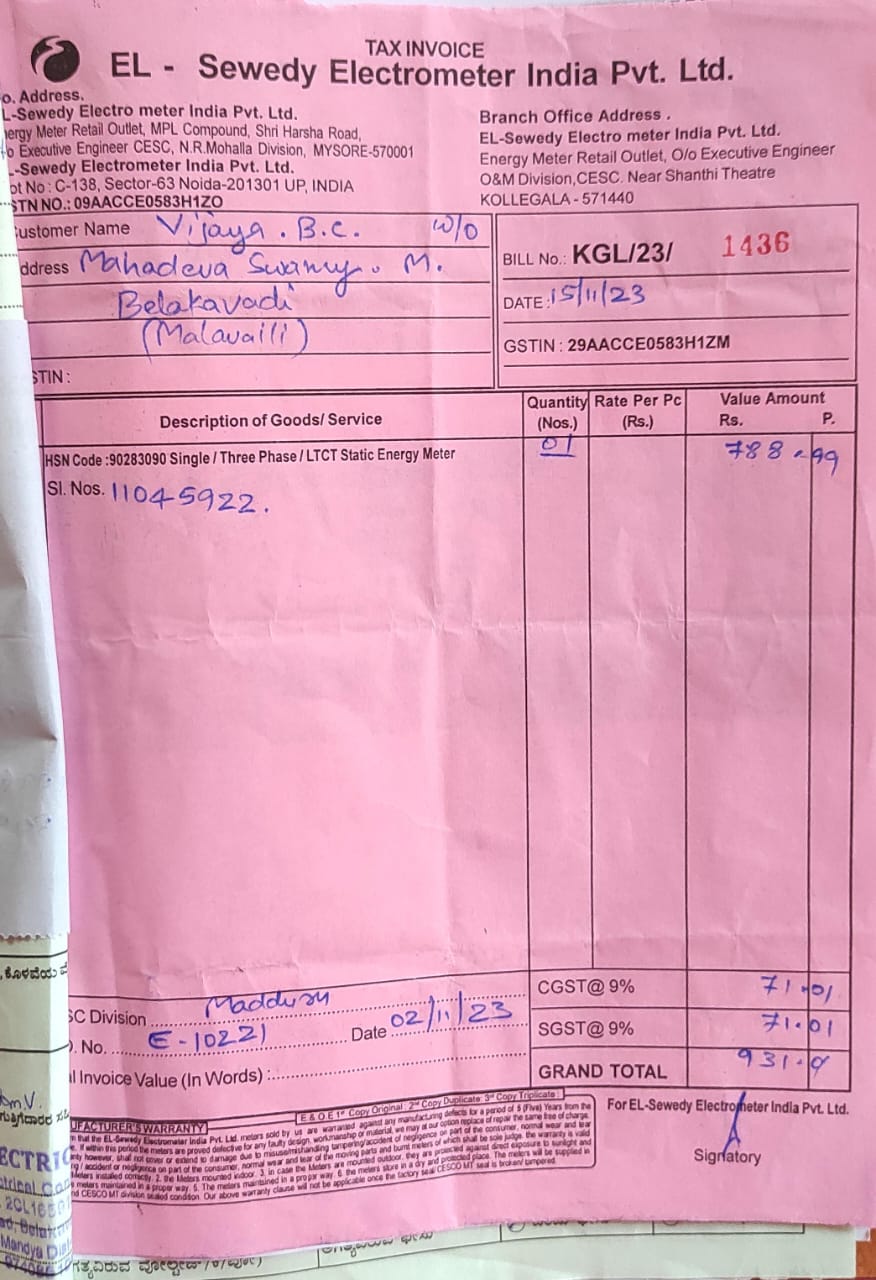 TAX INVOICE
EL - Sewedy Electrometer India Pvt. Ltd.
o. Address.
L-Sewedy Electro meter India Pvt. Ltd.
nergy Meter Retail Outlet, MPL Compound, Shri Harsha Road,
o Executive Engineer CESC, N.R.Mohalla Division, MYSORE-570001
-Sewedy Electrometer India Pvt. Ltd.
ot No : C-138, Sector-63 Noida-201301 UP, INDIA
STN NO.: 09AACCE0583H1ZO
Branch Office Address .
EL-Sewedy Electro meter India Pvt. Ltd.
Energy Meter Retail Outlet, O/o Executive Engineer
O&M Division,CESC. Near Shanthi Theatre
KOLLEGALA - 571440
ustomer Name Vijaya . B.C. W/o
ddress Mahadeva Swamy. M.
Belakavadi
(Malavalli)
STIN :
BILL No.: KGL/23/ 1436
DATE : 15/11/23
GSTIN : 29AACCE0583H1ZM
Description of Goods/ Service Quantity (Nos.) Rate Per Pc (Rs.) Value Amount Rs. P.
HSN Code :90283090 Single / Three Phase / LTCT Static Energy Meter 01 788-99
Sl. Nos. 11045922.
CGST@ 9% 71.01
SGST@ 9% 71.01
GRAND TOTAL 931.0
SC Division Maddur
. No. E-10221 Date 02/11/23
l Invoice Value (In Words) :
E & O.E 1st Copy Original : 2nd Copy Duplicate: 3rd Copy Triplicate :
UFACTURER'S WARRANTY
For EL-Sewedy Electrometer India Pvt. Ltd.
Signatory
ECTRIC
Mandya Dist